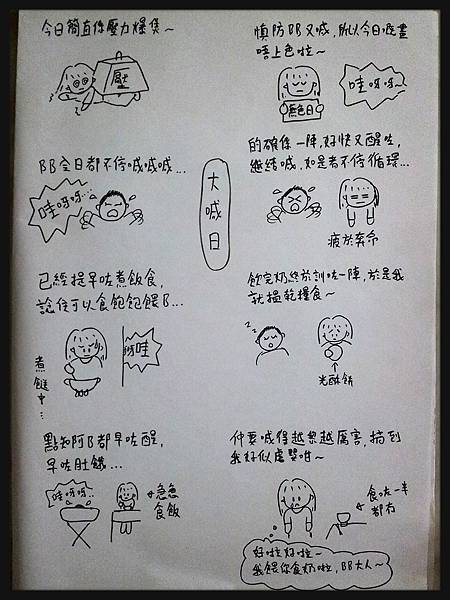 大喊日
今日簡直係壓力爆煲~
壓
BB全日都不停喊喊喊...
哇呀呀...
已經提早咗煮飯食,
諗住可以食飽飽餵B...
煮餸中...
哇
呀
點知阿B都早咗醒,
早咗肚餓...
哇呀呀..
急急
食飯
仲要喊得越黎越厲害,搞到
我好似虐嬰咁~
食咗一半
都冇
好啦好啦~
我餵你食奶啦,BB大人~
飲完奶終於訓咗一陣,於是我
就搵乾糧食~
zzz
光酥餅
的確係一陣,好快又醒咗,
繼續喊,如是者不停循環...
疲於奔命
慎防BB又喊,所以今日嘅畫
唔上色啦~
無色日
哇呀呀~